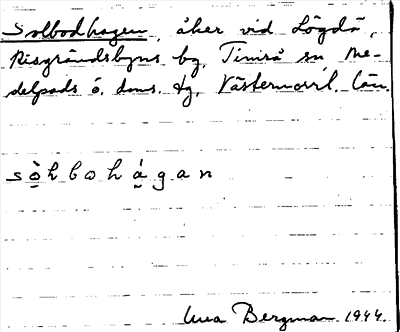 Solbodhagen, åker vid Lögdö,
Risgrändsbyns by, Timrå sn Me-
delpads ö. doms. tg, Västernorrl. län.
sòhbohágan
Bergman 1944.